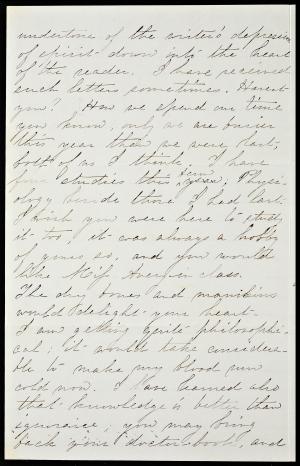 undertone of the writer's depression
of spirit down into the heart
of the reader. I have received
such letters sometimes. Haven't
you? How we spend our time
you know, only we are busier
this year than we were last,
both of us I think. I have
four studies this term, Physi-
ology beside those I had last.
I wish you were here to study
it too, it was always a hobby
of yours so, and you would
like Miss in class.
The dry bones and manikins
would delight your heart.
I am getting quite philosophi-
cal; it would take considera-
ble to make my blood run
cold now. I have learned also
that knowledge is better than
ignorance; you may bring
back your "doctor-book", and